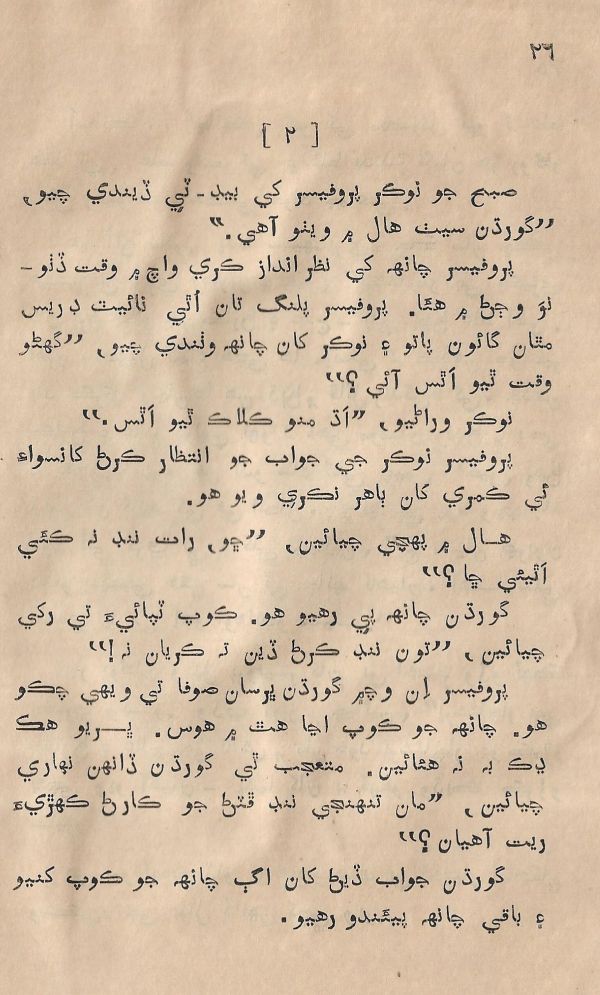 ٢٦
[ ٢ ]
صبح جو نوڪر پروفيسر کي بيڊ-ٽي ڏيندي چيو،
”گورڌن سيٺ هال ۾ ويٺو آهي.“
پروفيسر چانهه کي نظر انداز ڪري واچ ۾ وقت ڏٺو-
نوَ وڄڻ ۾ هئا. پروفيسر پلنگ تان اُٿي نائيٽ ڊريس
مٿان گائون پاتو ۽ نوڪر کان چانهه وٺندي چيو، ”گهڻو
وقت ٿيو اَٿس آئي؟“
نوڪر وراڻيو، ”اَڌ منو ڪلاڪ ٿيو اَٿس.“
پروفيسر نوڪر جي جواب جو انتظار ڪرڻ کانسواءِ
ئي ڪمري کان ٻاهر نڪري ويو هو.
هال ۾ پهچي چيائين، ”ڇو، رات ننڊ نه ڪئي
اَٿيئي ڇا؟“
گورڌن چانهه پي رهيو هو. ڪوپ ٽپائيءَ تي رکي
چيائين، ”تون ننڊ ڪرڻ ڏين ته ڪريان نه!“
پروفيسر اِن وچ۾ گورڌن ڀرسان صوفا تي ويهي چڪو
هو. چانهه جو ڪوپ اڃا هٿ ۾ هوس. ڀريو هڪ
ڍڪ به نه هئائين. متعجب ٿي گورڌن ڏانهن نهاري
چيائين، ”مان تنهنجي ننڊ ڦٽڻ جو ڪارڻ ڪهڙيءَ
ريت آهيان؟“
گورڌن جواب ڏيڻ کان اڳ چانهه جو ڪوپ کنيو
۽ باقي چانهه پيئندو رهيو.